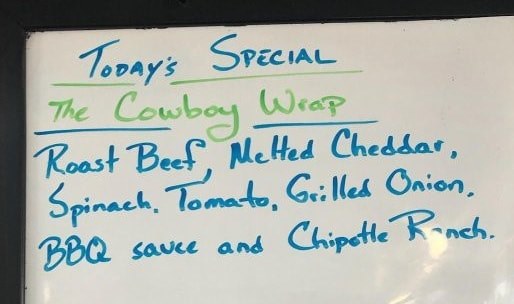 Today's Special
The Cowboy Wrap
Roast Beef, Melted Cheddar,
Spinach, Tomato, Grilled Onion,
BBQ sauce and Chipotle Ranch.